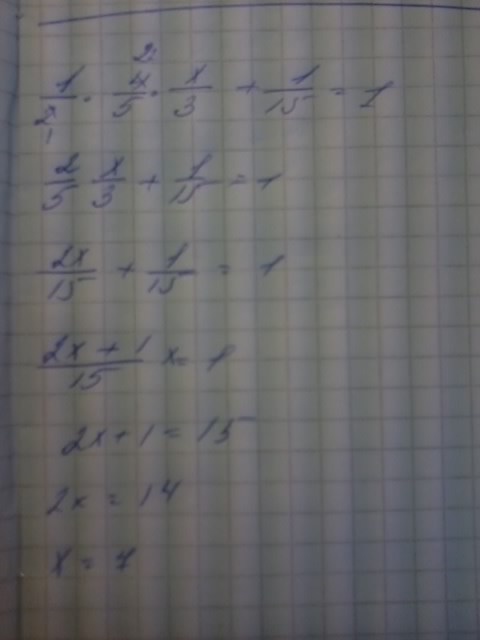 1/2 · 4/5 · x/3 + 1/15 = 1
2/5 x/3 + 1/15 = 1
2x/15 + 1/15 = 1
2x + 1/15 = 1
2x + 1 = 15
2x = 14
x = 7